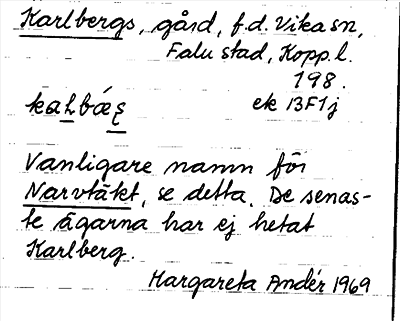 Karlbergs, gård, f.d. Vika sn,
Falu stad, Kopp. l.
198.
ek 13F1j
Vanligare namn för
Narvtäkt, se detta. De senas-
te ägarna har ej hetat
Karlberg.
Margareta Andér 1969